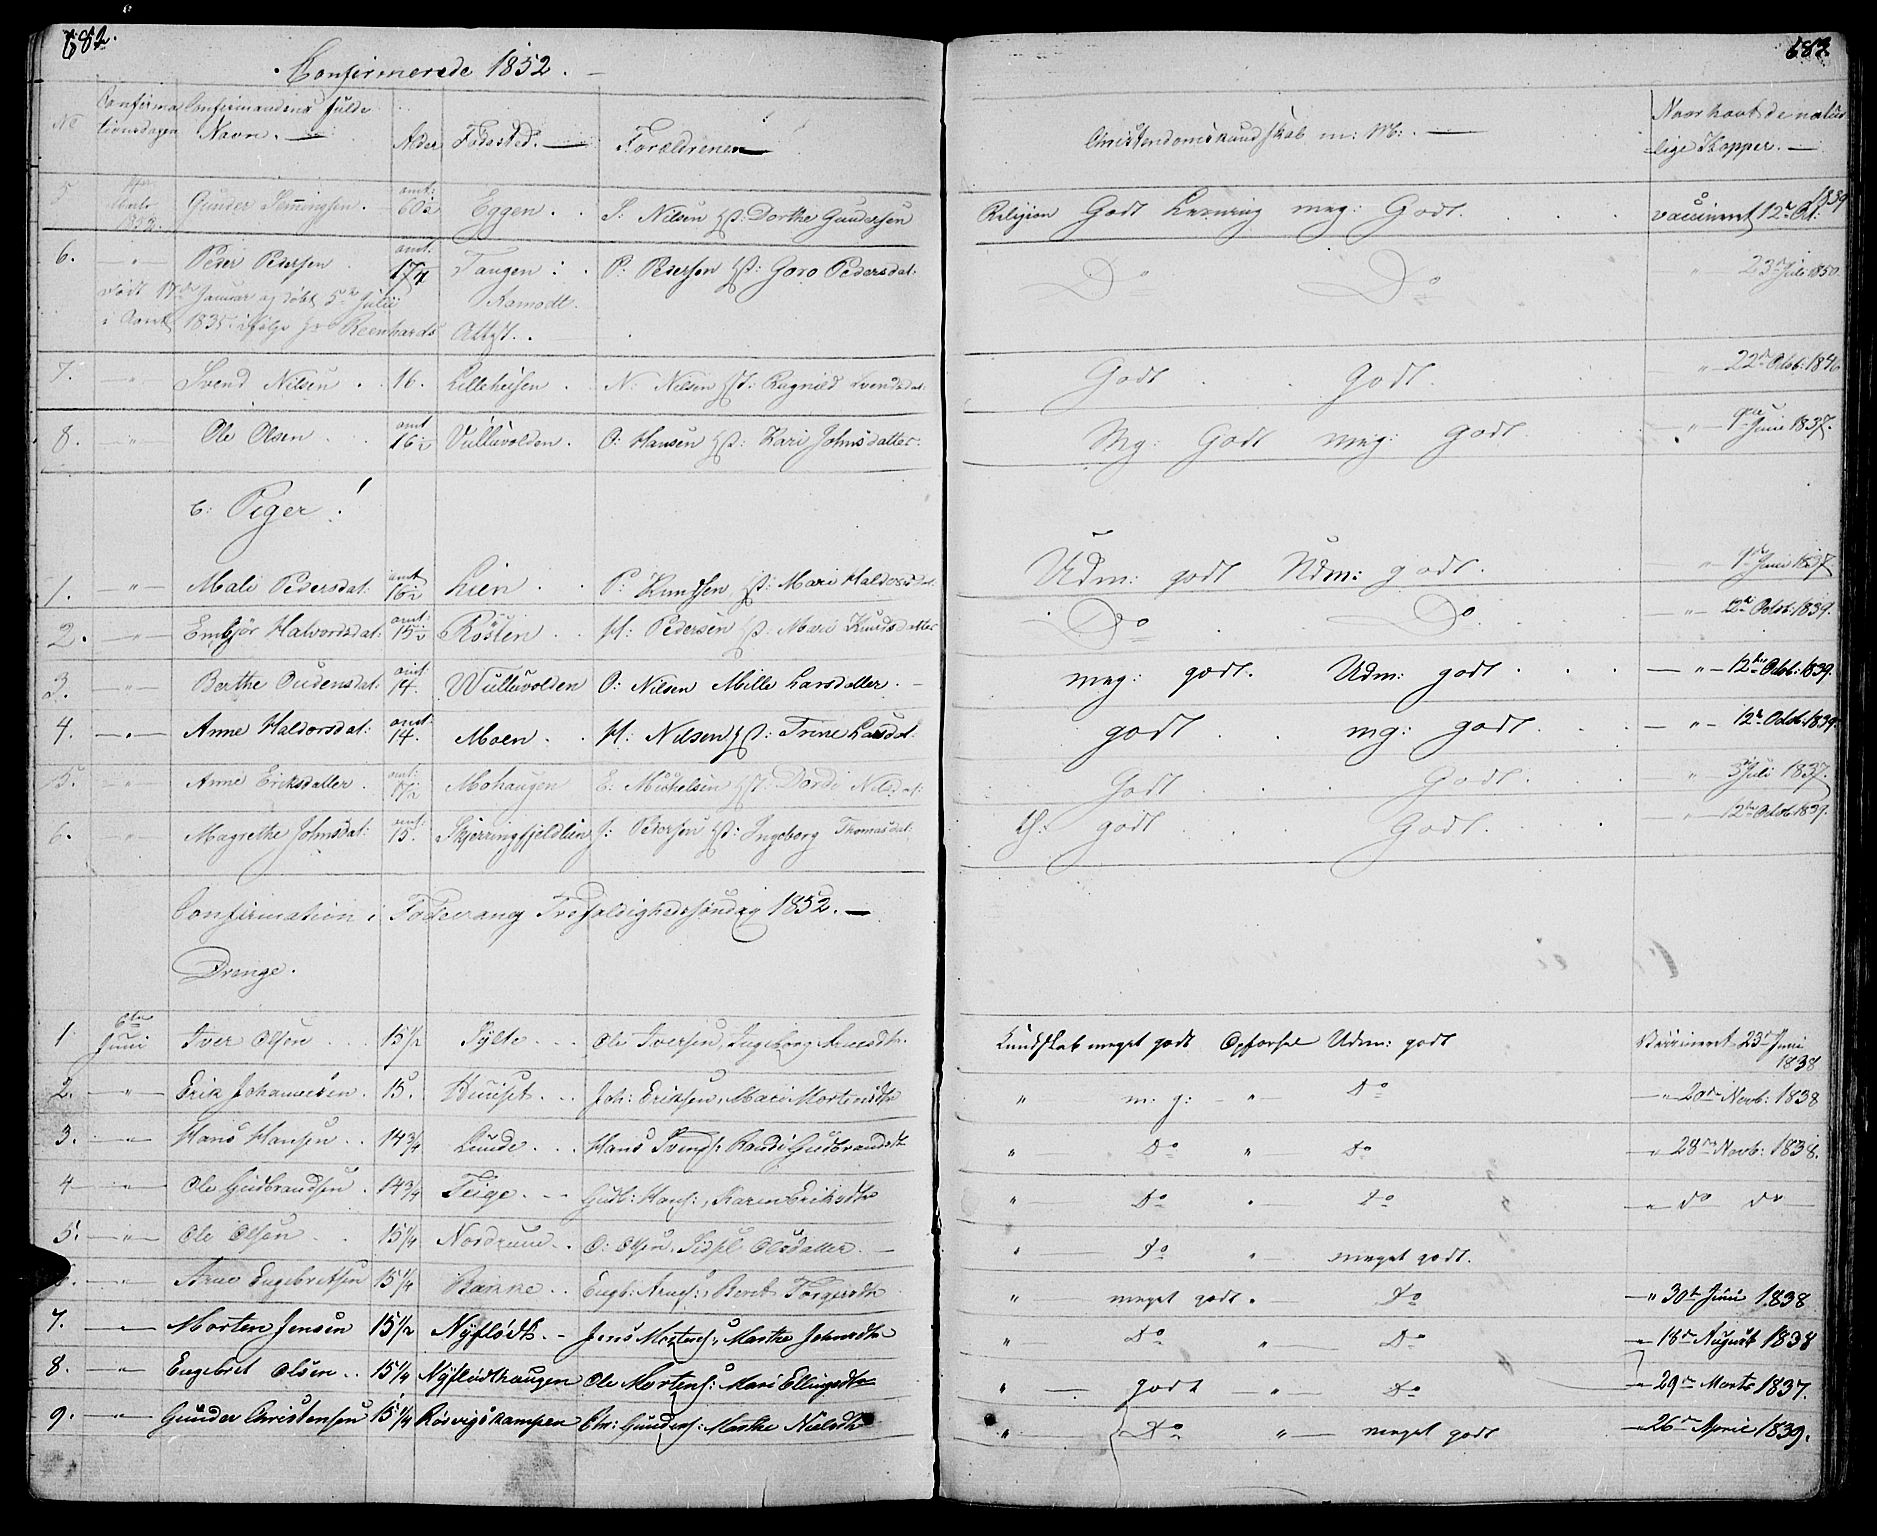 682.
Confirmerede 1852. —
No Confirmationsdagen Confirmandens fulde Navn. — Alder Fødested. — Forældrene —
5 1852. Gunder Semingsen. amt: Eggen. . S: Nilsen Hst: Dorthe Gundersen
6. „ Peder Pedersen amt. 17 Tangen P: Pedersen Hst: Goro Pedersdat:
Født 17de Januar og døbt 5te Julii Aamodt.
1835 ifølge Hr Reenhards Attest. .
7. —„— Svend Nilsen . . 16. Lillehusen . N: Nilsen Hst: Ragnild Svendsdat:
8. —„— Ole Olsen . . . amt 16½ Vulluvolden . O: Hansen Hst: Kari Johnsdatter.
b: Piger!
1. —„— Mali Pedersdat: amt 16½ Lien . . P: Knudsen Hst: Mari Haldorsdat.
2. —„— Embjør Halvordsdat: amt: 15½ Røsten . . H: Pedersen Hst: Mari Knudsdatter
3. —„— Berthe Oudensdat: amt: 14. Wulluvolden O: Nilsen Mille Larsdatter. —
4. —„— Anne Haldorsdat: amt: 14. Moen . . H: Nilsen Hst: Trine Larsdat.
5. —„— Anne Eriksdatter . amt: 17½ Mohaugen E: Michelsen Hst: Dordi Nilsdat:
6. „ Magrethe Johnsdat: amt: 15. Skjerringfjeldlien J: Pedersen Hst: Ingeborg Thomasdat.
Confirmation i Foldevang Trefoldighedssøndag 1852. —
Drenge.
1 6te Juni Iver Olsen . . . 15½ Sylte . . . Ole Iversen, Ingeborg Arnesdtr.
2. —„— Erik Johannesen . 15. Huuset . . . Joh: Eriksen, Mari Mortensdtr
3. —„— Hans Hansen . . 14¾ Lunde . . . Hans Svends: Randi Gudbrandsdtr
4 —„— Ole Gudbrandsen . 14¾ Teige . . . Gudb: Hans:, Karen Eriksdtr
5. —„— Ole Olsen . . 15¼ Nordrum . . O: Olsen, Sidsel Olsdatter. —
6. —„— Arne Engebretsen 15¼ Bakke . . Engb: Arnes:, Beret Torgersdtr
7. —„— Morten Jensen 15½ Nyflødt. – Jens Mortens:, Marthe Johnsdtr
8. —„— Engebret Olsen . . 15¼ Nyflødthaugen Ole Mortens: Mari Ellingsdtr
9. —„— Gunder Christensen 15¼ Røsvigskampen Chr: Gunders: Marthe Nielsdtr
683.
Christendomskundskab m: M: — Naar havt de naturlige Kopper. —
Religion Godt Lærning meg: Godt. . . . vaccineret 12te Oct: 1839
Do „ Do „ 23de Juli 1850.
Godt . . Godt . „ — 22de Octob: 1840
Mg: Godt meg: Godt — „ — Juni 1837.
Udm: godt Udm: godt. „ — 1ste Juni 1837.
Do . Do . — „ — 12te Octob: 1839.
meg: godt. Udm: godt . . . — „ — 12te Octob: 1839.
godt . . mg: godt . . . — „ — 12te Octob: 1839.
Godt . . . Godt . — „ — Juli 1837.
th: godt . . . Godt . — „ — 12te Octob: 1839.
Kundskab meget godt Opførsel Udm: godt Vaccineret 23de Juni 1838
„ m: g: — „ — Do —„ 20de Novb: 1838
„ Do „ Do —„ 28de Novb: 1838.
„ — Do „ — Do —„ do do —
„ — Do „ — meget godt.
„ meget godt. Do —„ 30te Juni 1838
„ Do „ — Do „ 18de August 1838
„ — godt „ — Do —„ 29de Marts 1837.
„ — Do „ — meget godt —„ 26de April 1839.